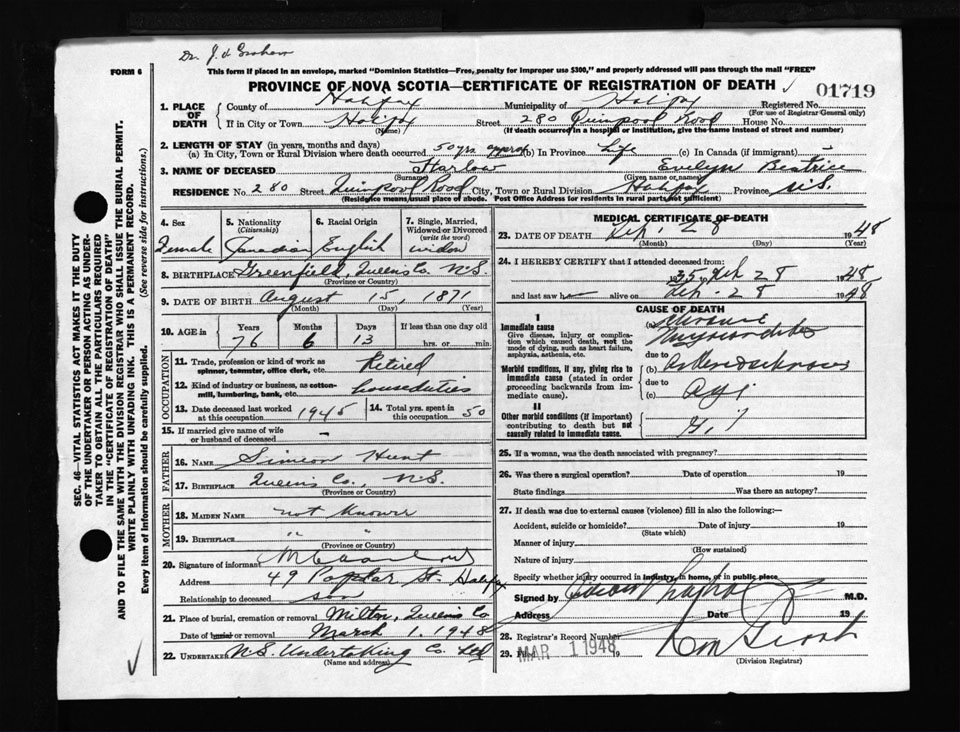 Dr. J. d. Graham
FORM 6
This form if placed in an envelope, marked "Dominion Statistics—Free, penalty for improper use $300," and properly addressed will pass through the mail "FREE"
PROVINCE OF NOVA SCOTIA—CERTIFICATE OF REGISTRATION OF DEATH
01719
1. PLACE OF DEATH County of Halifax Municipality of Halifax Registered No.
(For use of Registrar General only)
If in City or Town Halifax Street 280 Quinpool Road House No.
(Name) (If death occurred in a hospital or institution, give the name instead of street and number)
2. LENGTH OF STAY (in years, months and days)
(a) In City, Town or Rural Division where death occurred 50 yrs. approx (b) In Province Life (c) In Canada (if immigrant) -
3. NAME OF DECEASED Harlow Evelyn Beatrice
(Surname) (Given name or names)
RESIDENCE No. 280 Street Quinpool Road City, Town or Rural Division Halifax Province N.S.
(Residence means usual place of abode. Post Office Address for residents in rural parts not sufficient)
4. Sex Female
5. Nationality (Citizenship) Canadian
6. Racial Origin English
7. Single, Married, Widowed or Divorced (write the word) widow
8. BIRTHPLACE Greenfield, Queens Co. N.S.
(Province or Country)
9. DATE OF BIRTH August 15, 1871
(Month) (Day) (Year)
10. AGE in Years Months Days If less than one day old
76 6 13 hrs. or min.
OCCUPATION
11. Trade, profession or kind of work as spinner, teamster, office clerk, etc. Retired
12. Kind of industry or business, as cotton-mill, lumbering, bank, etc. house duties
13. Date deceased last worked at this occupation 1945
14. Total yrs. spent in this occupation 50
15. If married give name of wife or husband of deceased -
FATHER
16. NAME Simeon Hunt
17. BIRTHPLACE Queens Co., N.S.
(Province or Country)
MOTHER
18. MAIDEN NAME not known
19. BIRTHPLACE " "
(Province or Country)
20. Signature of informant
Address 49 Poplar St. Halifax
Relationship to deceased son
21. Place of burial, cremation or removal Milton, Queens Co
Date of burial or removal March 1, 1948
22. UNDERTAKER N.S. Undertaking Co. Ltd
(Name and address)
MEDICAL CERTIFICATE OF DEATH
23. DATE OF DEATH Feb. 28 1948
(Month) (Day) (Year)
24. I HEREBY CERTIFY that I attended deceased from:
1935 to Feb 28 1948
and last saw her alive on Feb 28 1948
CAUSE OF DEATH
I
Immediate cause
Give disease, injury or complication which caused death, not the mode of dying, such as heart failure, asphyxia, asthenia, etc.
(a) Chronic Myocarditis
due to
Morbid conditions, if any, giving rise to immediate cause (stated in order proceeding backwards from immediate cause).
(b) Arteriosclerosis
due to
(c) Age
II
Other morbid conditions (if important) contributing to death but not causally related to immediate cause.
25. If a woman, was the death associated with pregnancy?
26. Was there a surgical operation? Date of operation 19
State findings Was there an autopsy?
27. If death was due to external causes (violence) fill in also the following:—
Accident, suicide or homicide? Date of injury 19
(State which)
Manner of injury
(How sustained)
Nature of injury
Specify whether injury occurred in industry, in home, or in public place
Signed by M.D.
Address Date 19
28. Registrar's Record Number
29. Filed MAR 1 1948 19
(Division Registrar)
SEC. 46—VITAL STATISTICS ACT MAKES IT THE DUTY
OF THE UNDERTAKER OR PERSON ACTING AS UNDER-
TAKER TO OBTAIN ALL THE PARTICULARS REQUIRED
IN THE "CERTIFICATE OF REGISTRATION OF DEATH"
AND TO FILE THE SAME WITH THE DIVISION REGISTRAR WHO SHALL ISSUE THE BURIAL PERMIT.
WRITE PLAINLY WITH UNFADING INK. THIS IS A PERMANENT RECORD.
Every item of information should be carefully supplied. (See reverse side for instructions.)